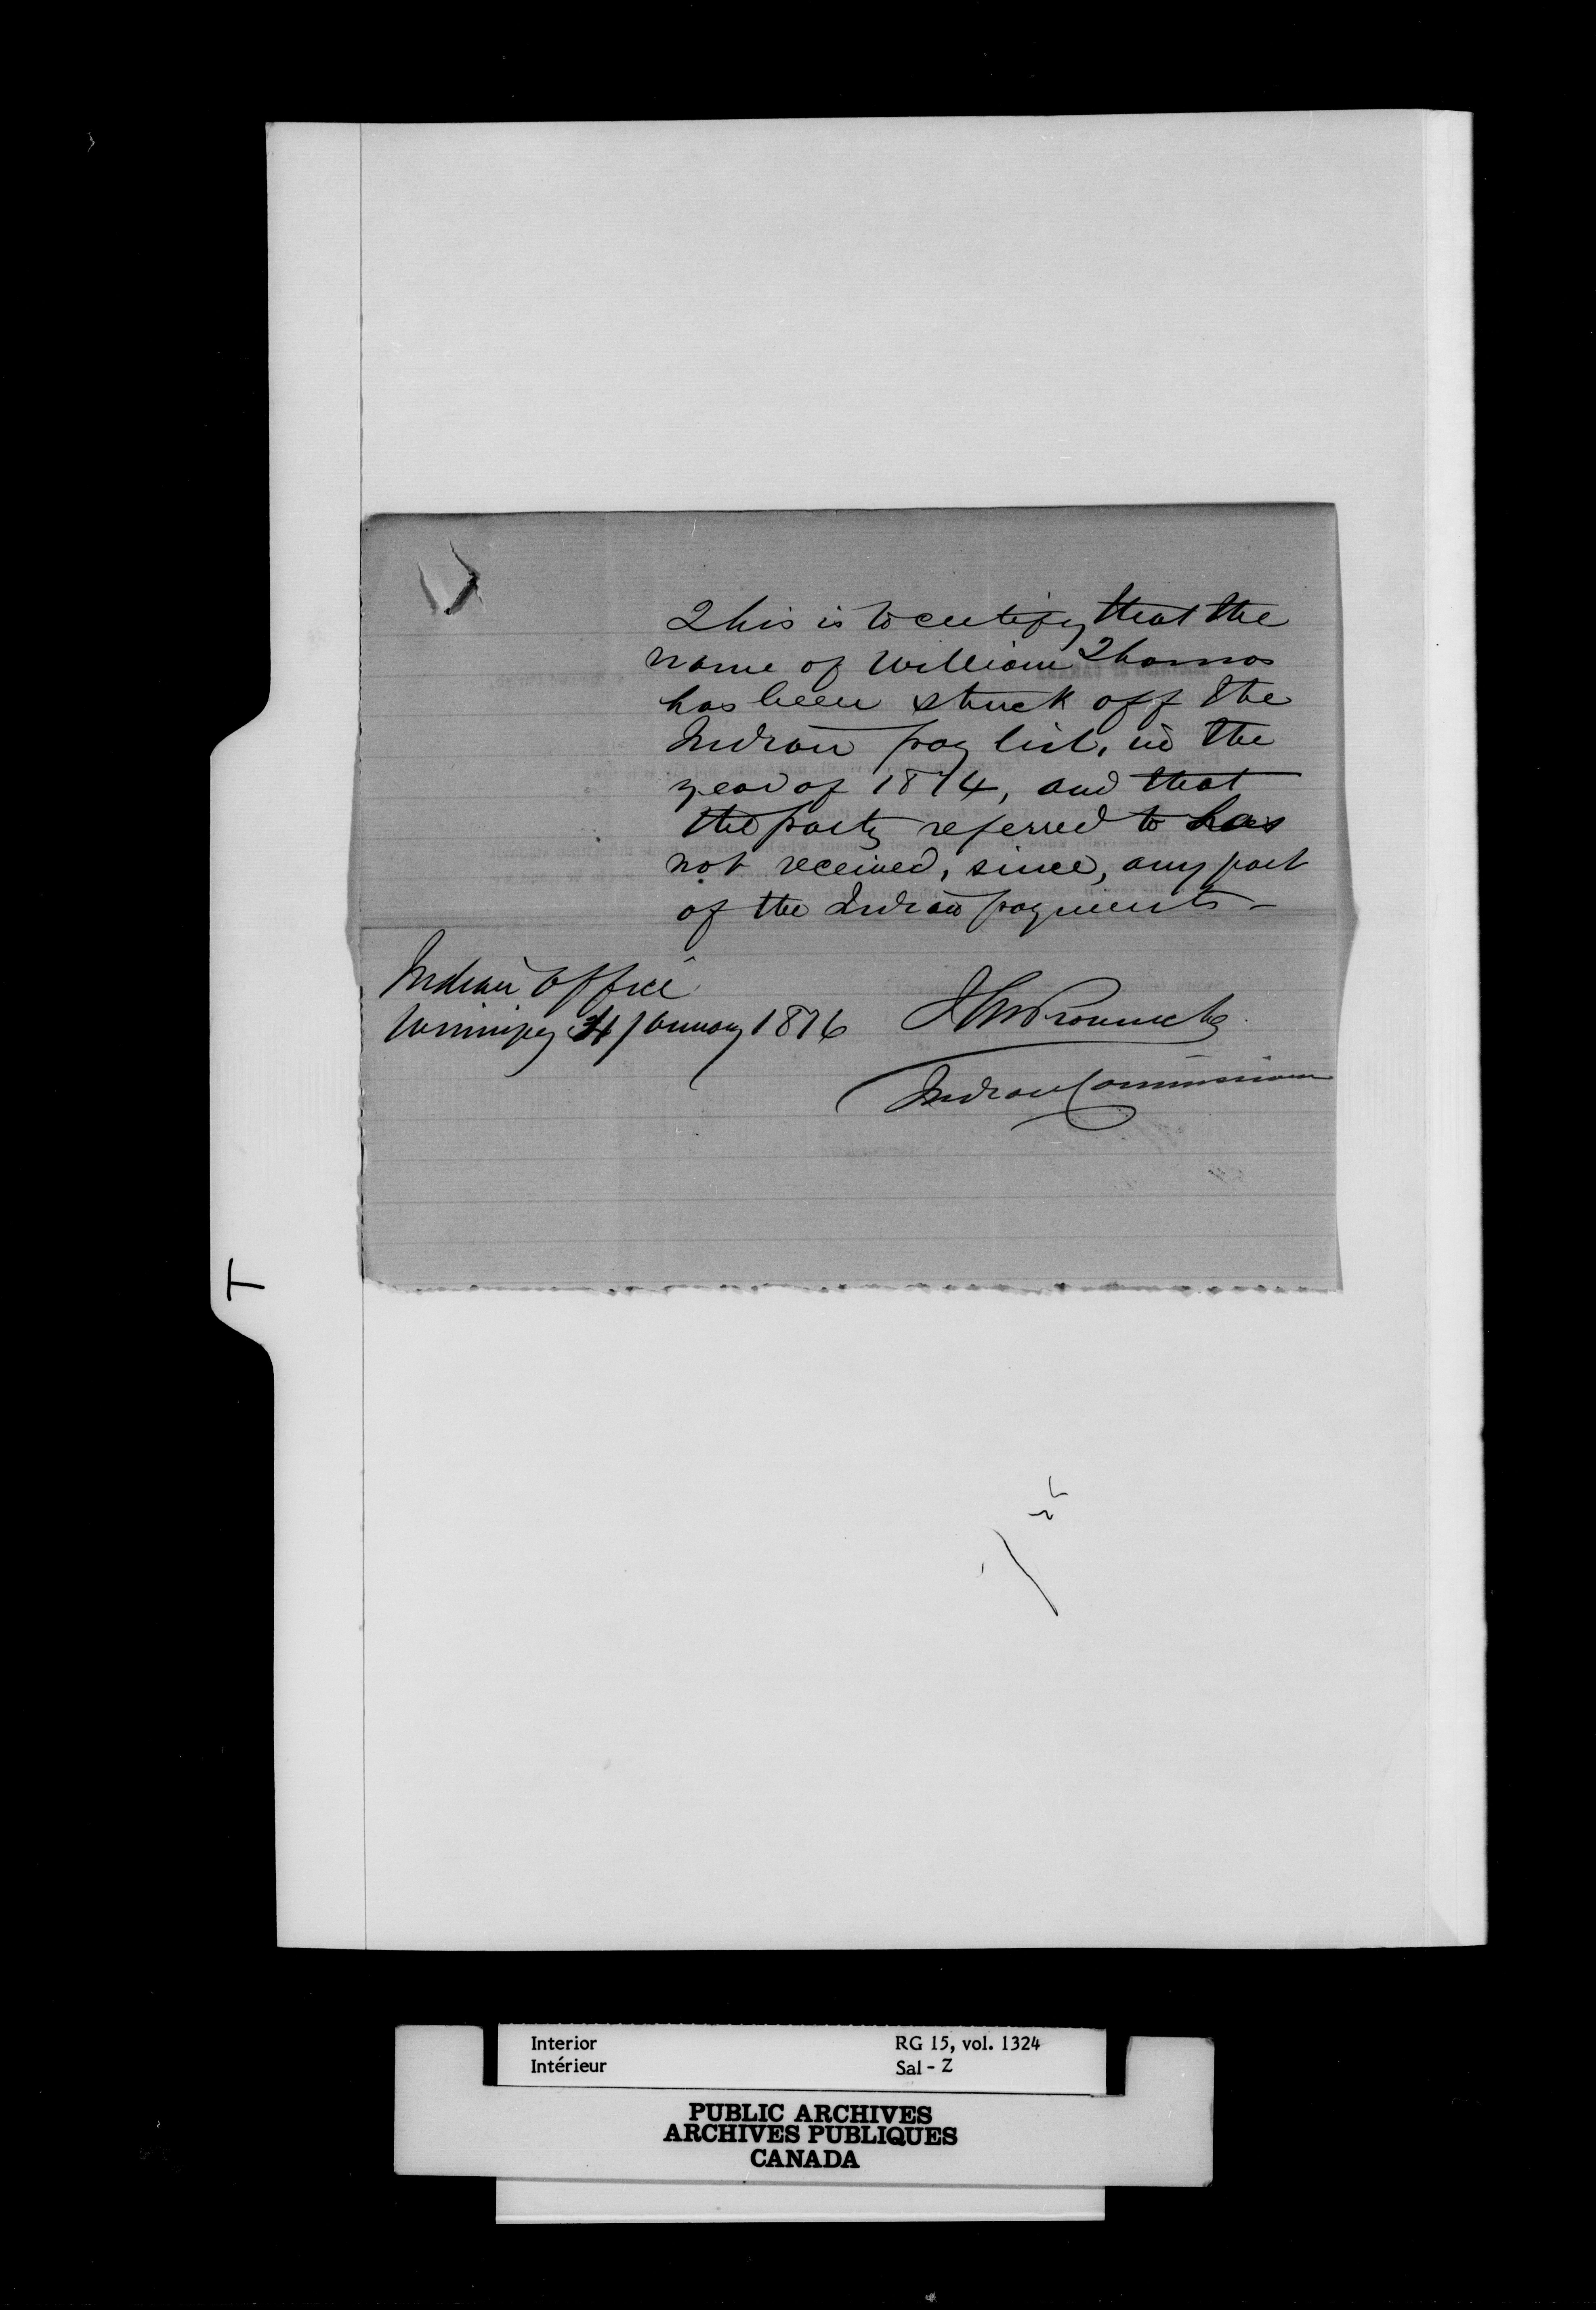 This is to certify that the
name of William Thomas
has been struck off the
Indian pay list, in the
year of 1874, and that
the party referred to has
not received, since, any part
of the Indian payments -
Indian Office
Winnipeg January 1876
Indian Commissioner
T
Interior RG 15, vol. 1324
Intérieur Sal - Z
PUBLIC ARCHIVES
ARCHIVES PUBLIQUES
CANADA